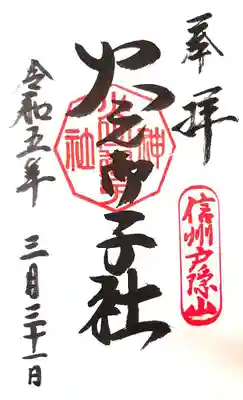 奉拝
信州戸隠山
火之御子社
令和五年 三月三十一日